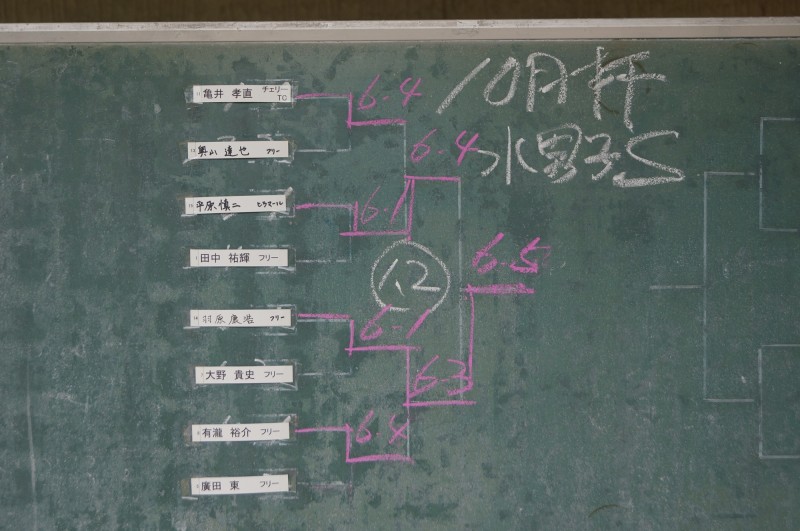 10月杯
水男子S
亀井 孝直 チェリーTC
奥山 達也 フリー
平原 慎二 ヒラマール
田中 祐輝 フリー
羽原 康浩 フリー
大野 貴史 フリー
有瀧 裕介 フリー
廣田 東 フリー
6-4
6-1
6-1
6-4
6-4
6-3
6-5
1,2